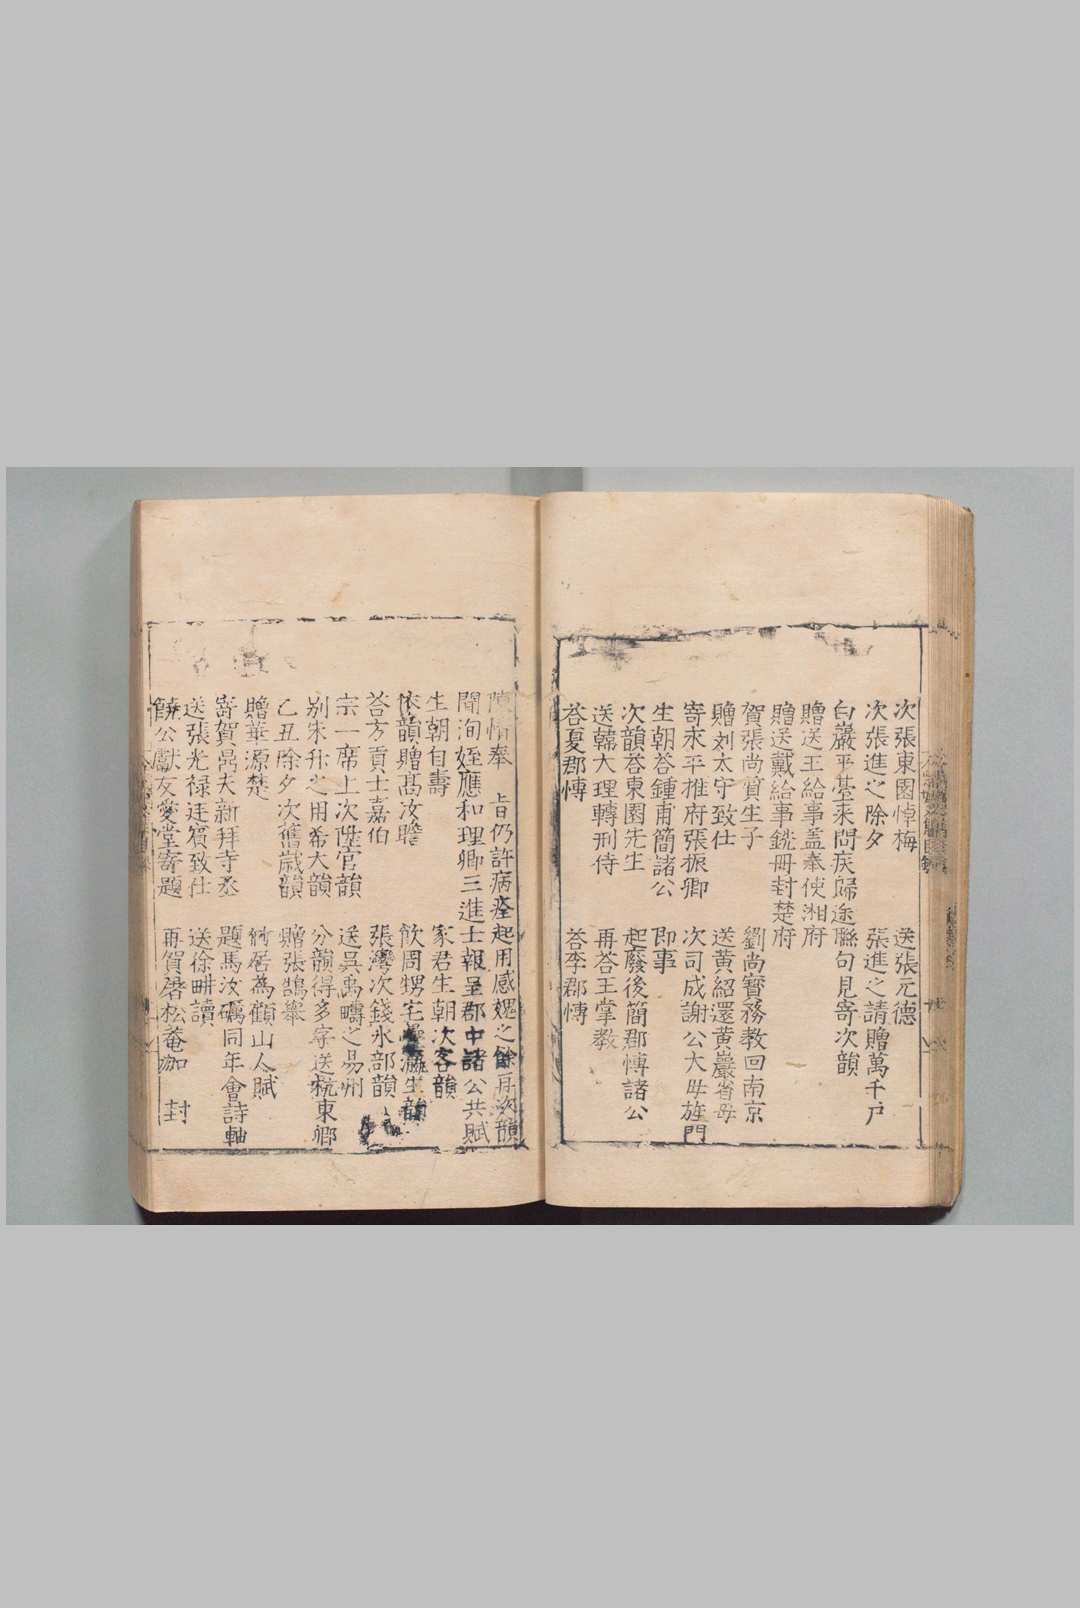 次張東園悼梅　送張元德
次張進之除夕　張進之請贈萬千戶
白巖平臺来問疾歸途聯句見寄次韻
贈送王給事蓋奉使湘府
贈送戴給事銑冊封楚府
賀張尚質生子　劉尚寶務教回南京
贈刘太守致仕　送黄紹還黄巖省母
寄永平推府張振卿　次司成謝公大母旌門
生朝荅鍾甫簡諸公　即事
次韻荅東園先生　起廢後簡郡愽諸公
送韓大理轉刑侍　再荅王掌教
荅夏郡愽　荅李郡愽
陳情奉　旨仍許病痊起用感媿之餘再次韻
聞洵姪應和理卿三進士報呈郡中諸公共賦
生朝自壽　家君生朝次客韻
依韻贈髙汝瞻　飲周甥宅生韻
荅方貢士嘉伯　張灣次錢水部韻
宗一席上次陞官韻　送吴禹疇之易州
别朱升之用希大韻　分韻得多字送杭東卿
乙丑除夕次舊歲韻　贈張鵠舉
贈華源楚　居為顧山人賦
寄賀喬夫新拜寺丞　題馬汝礪同年會詩軸
送張光禄廷賓致仕　送徐畊讀
饒公獻友愛堂寄題　再賀磨松菴加　封